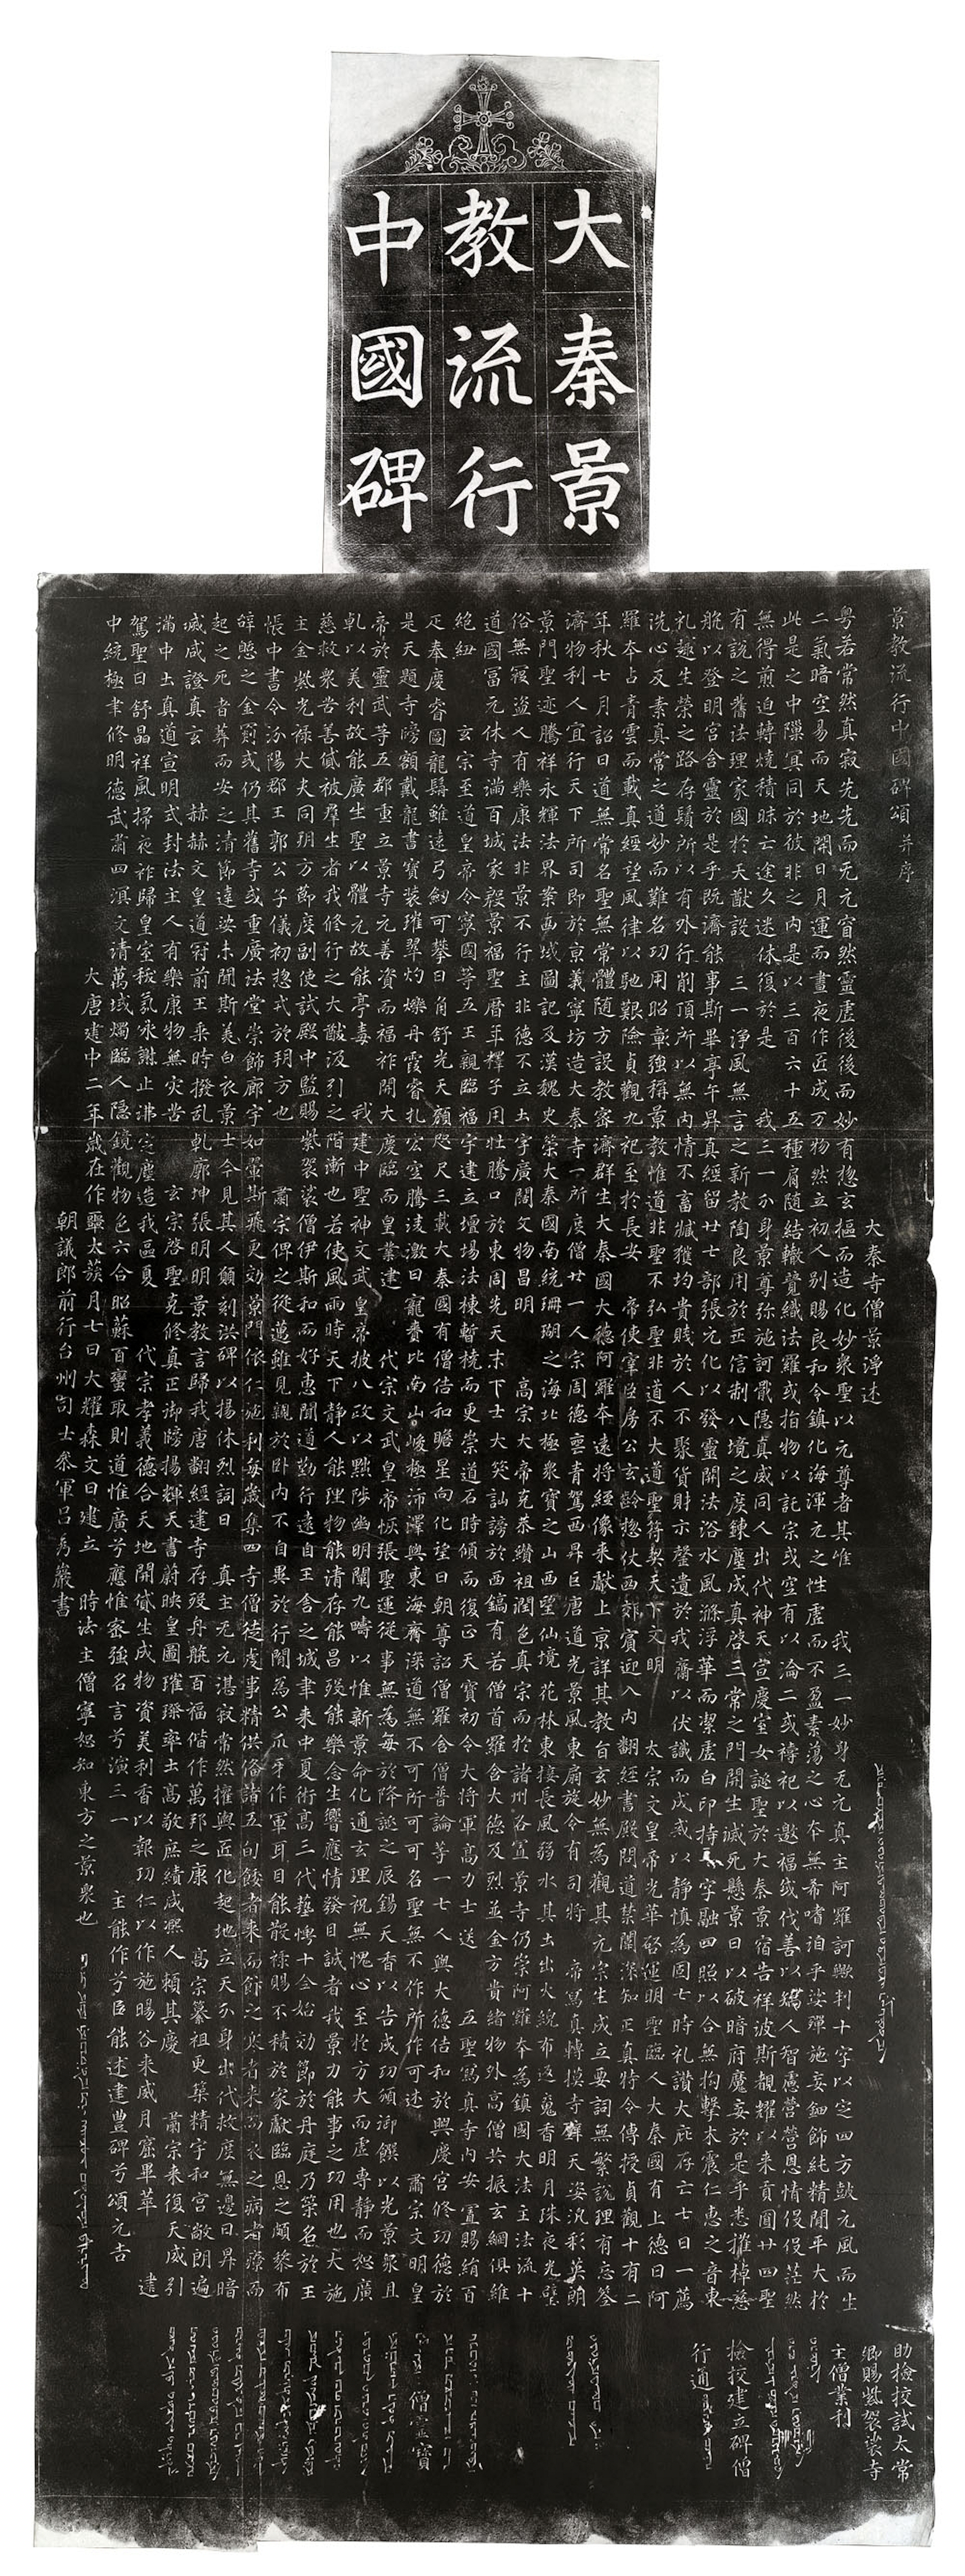 大秦景
教流行
中國碑
景教流行中國碑頌并序
大秦寺僧景淨述
粵若常然真寂先先而无元窅然靈虛後後而妙有惣玄樞而造化妙衆聖以元尊者其唯 我三一妙身无元真主阿羅訶歟判十字以定四方鼓元風而生
二氣暗空易而天地開日月運而晝夜作匠成万物然立初人别賜良和令鎮化海渾元之性虛而不盈素蕩之心本無希嗜洎乎娑殫施妄鈿飾純精閒平大於
此是之中隟冥同於彼非之內是以三百六十五種肩随結轍競織法羅或指物以託宗或空有以淪二或禱祀以邀福或伐善以矯人智慮營營恩情役役茫然
無得煎迫轉燒積昧亡途久迷休復於是 我三一分身景尊弥施訶戢隱真威同人出代神天宣慶室女誕聖於大秦景宿告祥波斯覩耀以来貢圓廿四聖
有說之舊法理家國於大猷設 三一淨風無言之新教陶良用於正信制八境之度鍊塵成真啓三常之門開生滅死懸景日以破暗府魔妄於是乎悉摧棹慈
航以登明宮含靈於是乎既濟能事斯畢亭午昇真經留廿七部張元化以發靈關法浴水風滌浮華而潔虛白印持十字融四照以合無拘擊木震仁惠之音東
礼趣生榮之路存鬚所以有外行削頂所以無內情不畜臧獲均貴賤於人不聚貨財示罄遺於我齋以伏識而成戒以靜慎為固七時礼讚大庇存亡七日一薦
洗心反素真常之道妙而難名功用昭彰強稱景教惟道非聖不弘聖非道不大道聖符契天下文明 太宗文皇帝光華啓運明聖臨人大秦國有上德曰阿
羅本占青雲而載真經望風律以馳艱險貞觀九祀至於長安 帝使宰臣房公玄齡惣仗西郊賓迎入內翻經書殿問道禁闈深知正真特令傳授貞觀十有二
年秋七月詔曰道無常名聖無常體随方設教密濟群生大秦國大德阿羅本遠將經像来獻上京詳其教旨玄妙無為觀其元宗生成立要詞無繁說理有忘筌
濟物利人宜行天下所司即於京義寧坊造大秦寺一所度僧廿一人宗周德喪青駕西昇巨唐道光景風東扇旋令有司將 帝寫真轉摸寺壁天姿汎彩英朗
景門聖迹騰祥永輝法界案西域圖記及漢魏史策大秦國南統珊瑚之海北極衆寶之山西望仙境花林東接長風弱水其土出火綄布返魂香明月珠夜光璧
俗無寇盜人有樂康法非景不行主非德不立土宇廣闊文物昌明 高宗大帝克恭纘祖潤色真宗而於諸州各置景寺仍崇阿羅本為鎮國大法主法流十
道國富元休寺滿百城家殷景福聖曆年釋子用壯騰口於東周先天末下士大笑訕謗於西鎬有若僧首羅含大德及烈並金方貴緒物外高僧共振玄綱俱維
絕紐 玄宗至道皇帝令寧國等五王親臨福宇建立壇場法棟暫橈而更崇道石時傾而復正天寶初令大將軍高力士送 五聖寫真寺內安置賜絹百
疋奉慶睿圖龍髯雖遠弓劒可攀日角舒光天顏咫尺三載大秦國有僧佶和瞻星向化望日朝尊詔僧羅含僧普論等一七人與大德佶和於興慶宮修功德於
是天題寺牓額戴龍書寶裝璀翠灼爍丹霞睿扎宏空騰淩激日寵賚比南山峻極沛澤與東海齊深道無不可所可可名聖無不作所作可述 肅宗文明皇
帝於靈武等五郡重立景寺元善資而福祚開大慶臨而皇業建 代宗文武皇帝恢張聖運從事無為每於降誕之辰錫天香以告成功頒御饌以光景衆且
乹以美利故能廣生聖以體元故能亭毒 我建中聖神文武皇帝披八政以黜陟幽明闡九疇以惟新景命化通玄理祝無愧心至於方大而虛專靜而恕廣
慈救衆苦善貸被羣生者我修行之大猷汲引之階漸也若使風雨時天下靜人能理物能清存能昌歿能樂念生響應情發目誠者我景力能事之功用也大施
主金紫光禄大夫同朔方節度副使試殿中監賜紫袈裟僧伊斯和而好惠聞道勤行遠自王舍之城聿来中夏術高三代藝博十全始効節於丹庭乃策名於王
帳中書令汾陽郡王郭公子儀初惣戎於朔方也 肅宗俾之從邁雖見親於卧內不自異於行間為公爪牙作軍耳目能散禄賜不積於家獻臨恩之頗黎布
辝憩之金罽或仍其舊寺或重廣法堂崇飾廊宇如翬斯飛更効景門依仁施利每歲集四寺僧徒虔事精供俻諸五旬餧者来而飰之寒者来而衣之病者療而
起之死者葬而安之清節達娑未聞斯美白衣景士今見其人願刻洪碑以揚休烈詞曰 真主无元湛寂常然權輿匠化起地立天分身出代救度無邊日昇暗
滅咸證真玄 赫赫文皇道冠前王乘時撥乱乹廓坤張明明景教言歸我唐翻經建寺存歿舟航百福偕作萬邦之康 高宗纂祖更築精宇和宮敞朗遍
滿中土真道宣明式封法主人有樂康物無灾苦 玄宗啓聖克修真正御牓揚輝天書蔚映皇圖璀璨率土高敬庶績咸熙人賴其慶 肅宗来復天威引
駕聖日舒晶祥風掃夜祚歸皇室祅氛永謝止沸定塵造我區夏 代宗孝義德合天地開貸生成物資美利香以報功仁以作施暘谷来威月窟畢萃 建
中統極聿修明德武肅四溟文清萬域燭臨人隱鏡觀物色六合昭蘇百蠻取則道惟廣兮應惟密強名言兮演三一 主能作兮臣能述建豐碑兮頌元吉
大唐建中二年歲在作噩太蔟月七日大耀森文日建立 時法主僧寧恕知東方之景衆也
朝議郎前行台州司士參軍呂秀巖書
助撿挍試太常
卿賜紫袈裟寺
主僧業利
撿挍建立碑僧
行通
僧靈寶